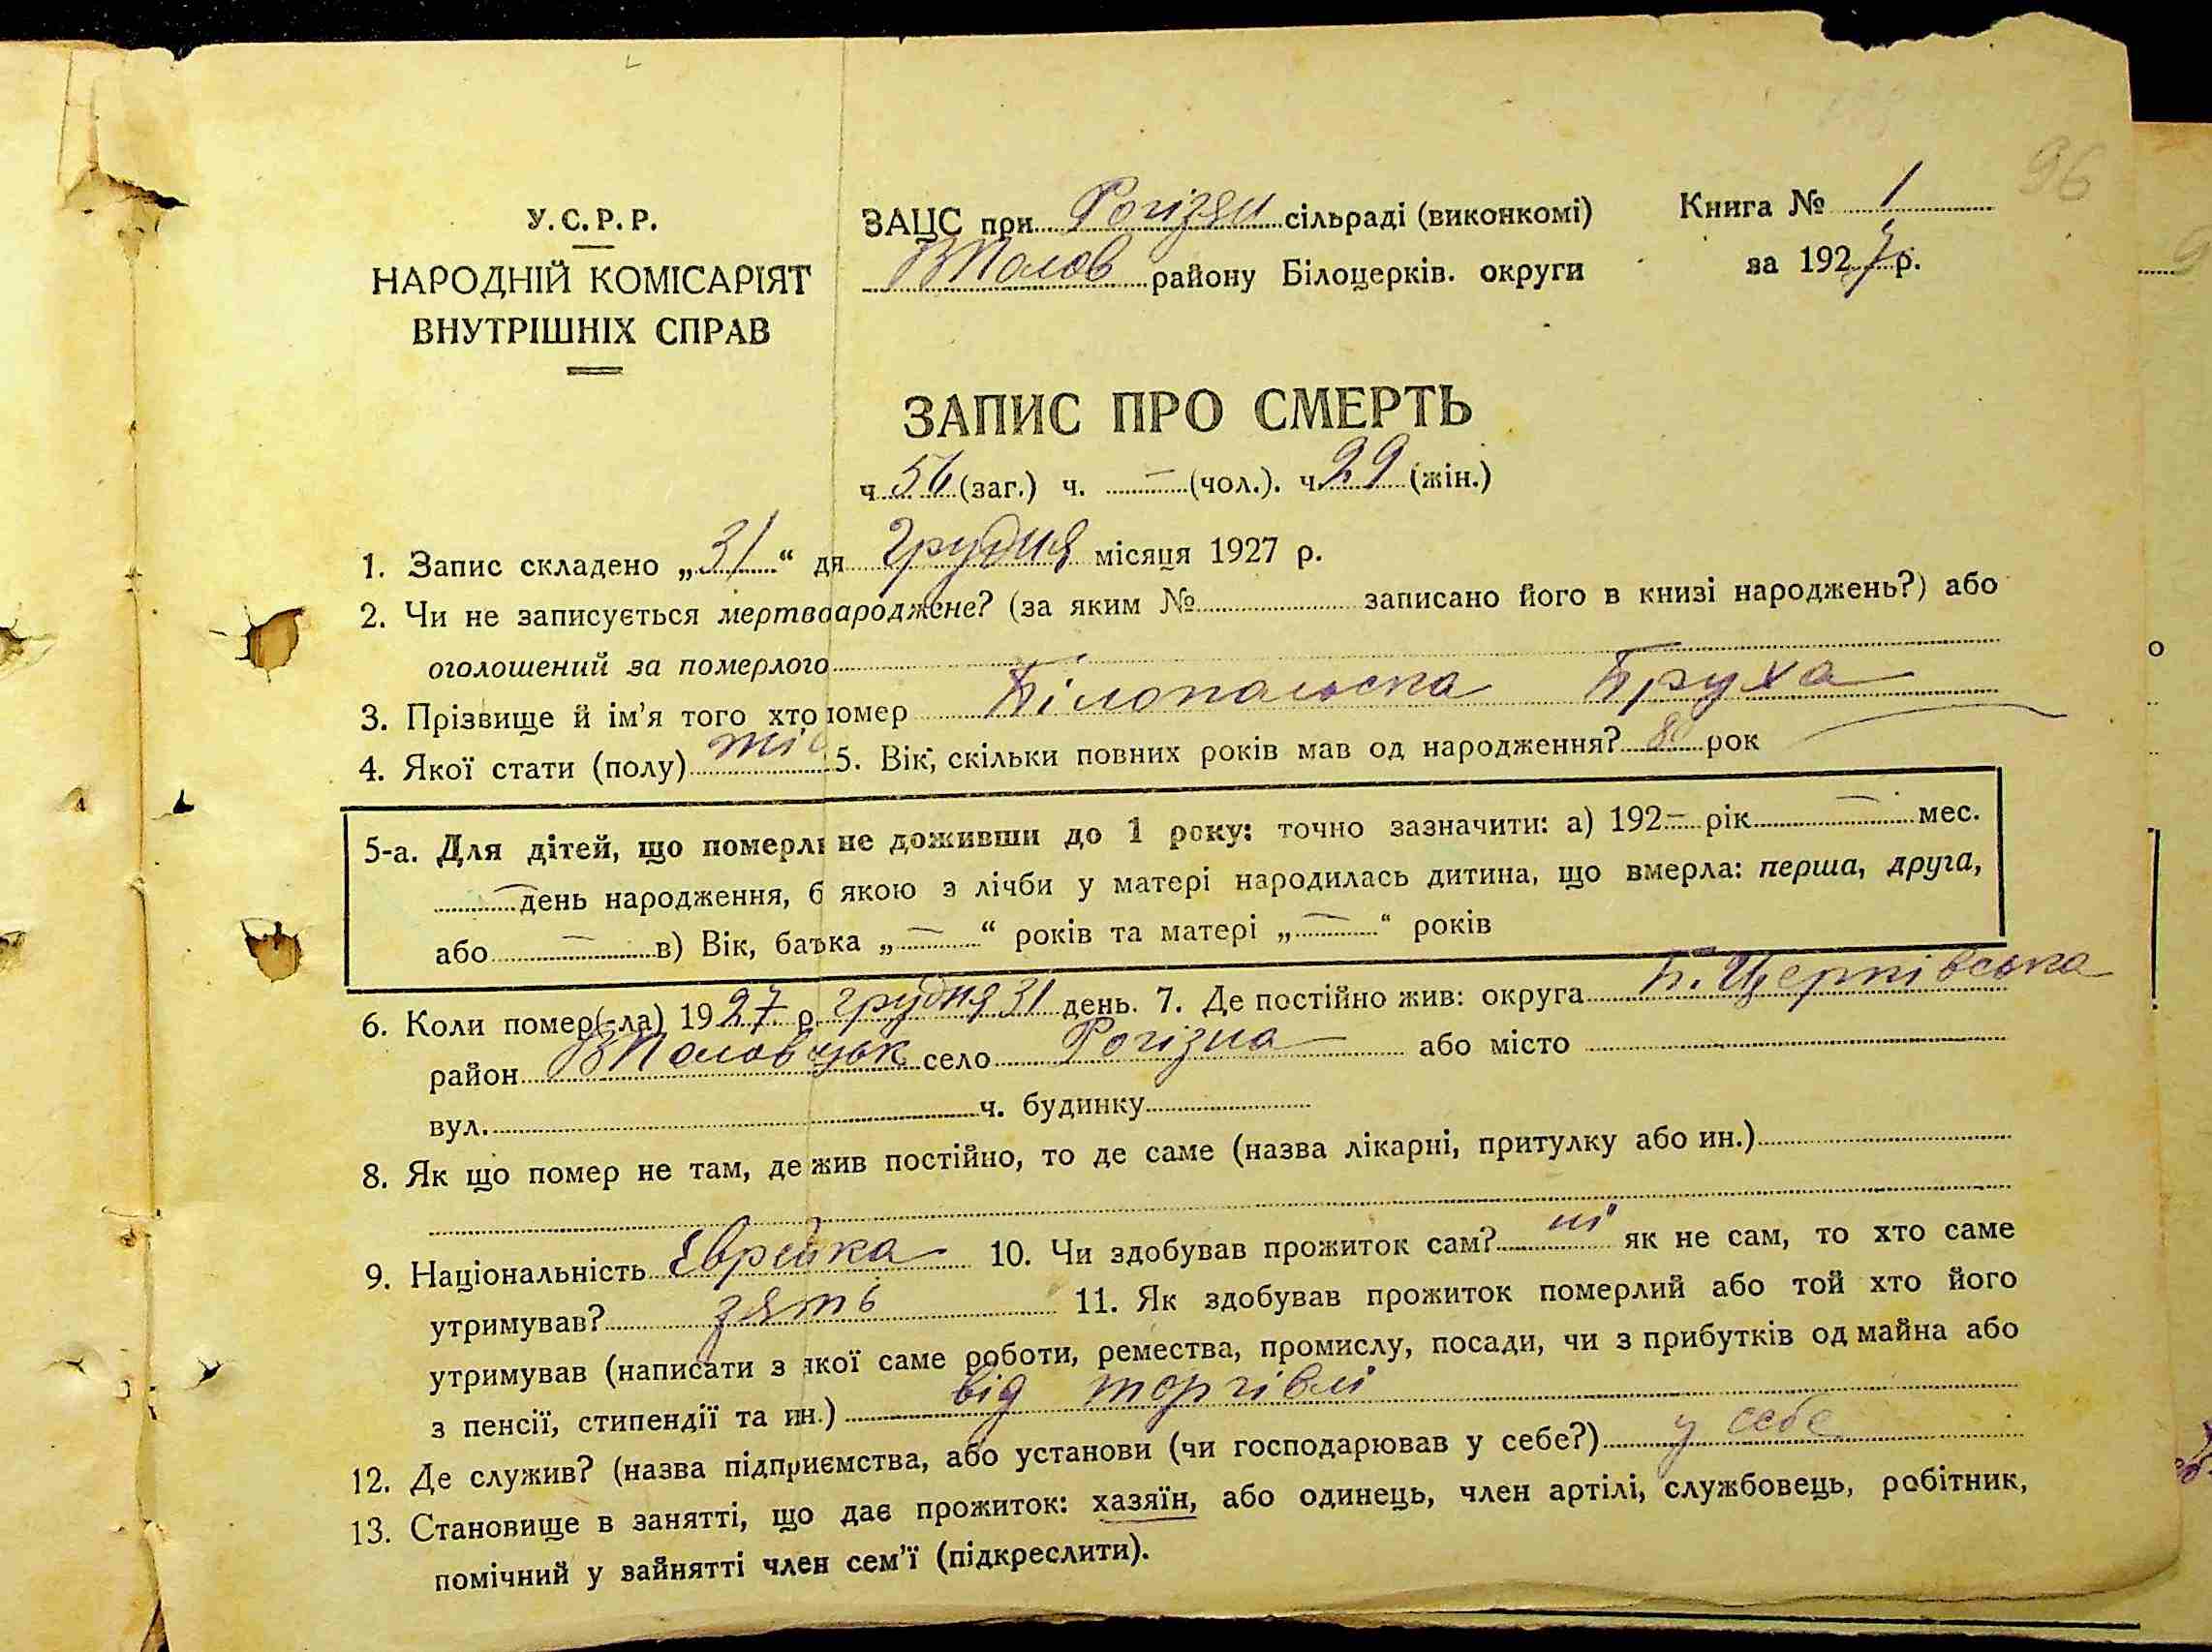 96
У.С.Р.Р.
НАРОДНІЙ КОМІСАРІЯТ
ВНУТРІШНІХ СПРАВ
ЗАЦС при Рогізян сільраді (виконкомі)
ВПолов району Білоцерків. округи
Книга № 1
за 1927 р.
ЗАПИС ПРО СМЕРТЬ
ч 56 (заг.) ч. — (чол.). ч. 29 (жін.)
1. Запис складено „31“ дя грудня місяця 1927 р.
2. Чи не записується мертвоароджене? (за яким № записано його в книзі народжень?) або
оголошений за померлого
3. Прізвище й ім’я того хто помер Білопольска Бруха
4. Якої стати (полу) жін 5. Вік, скільки повних років мав од народження? 80 рок
5-а. Для дітей, що померли не доживши до 1 року: точно зазначити: а) 192— рік — мес.
— день народження, б якою з лічби у матері народилась дитина, що вмерла: перша, друга,
або — в) Вік, батька „—“ років та матері „—“ років
6. Коли помер(-ла) 1927 р. грудня 31 день. 7. Де постійно жив: округа Б. Церківська
район ВПоловецьк село Рогізна або місто
вул. ч. будинку
8. Як що помер не там, де жив постійно, то де саме (назва лікарні, притулку або ин.)
9. Національність Єврейка 10. Чи здобував прожиток сам? ні як не сам, то хто саме
утримував? зять 11. Як здобував прожиток померлий або той хто його
утримував (написати з якої саме роботи, ремества, промислу, посади, чи з прибутків од майна або
з пенсії, стипендії та ин.) від торгівлі
12. Де служив? (назва підприємства, або установи (чи господарював у себе?) у себе
13. Становище в занятті, що дає прожиток: хазяїн, або одинець, член артілі, службовець, робітник,
помічний у зайнятті член сем’ї (підкреслити).